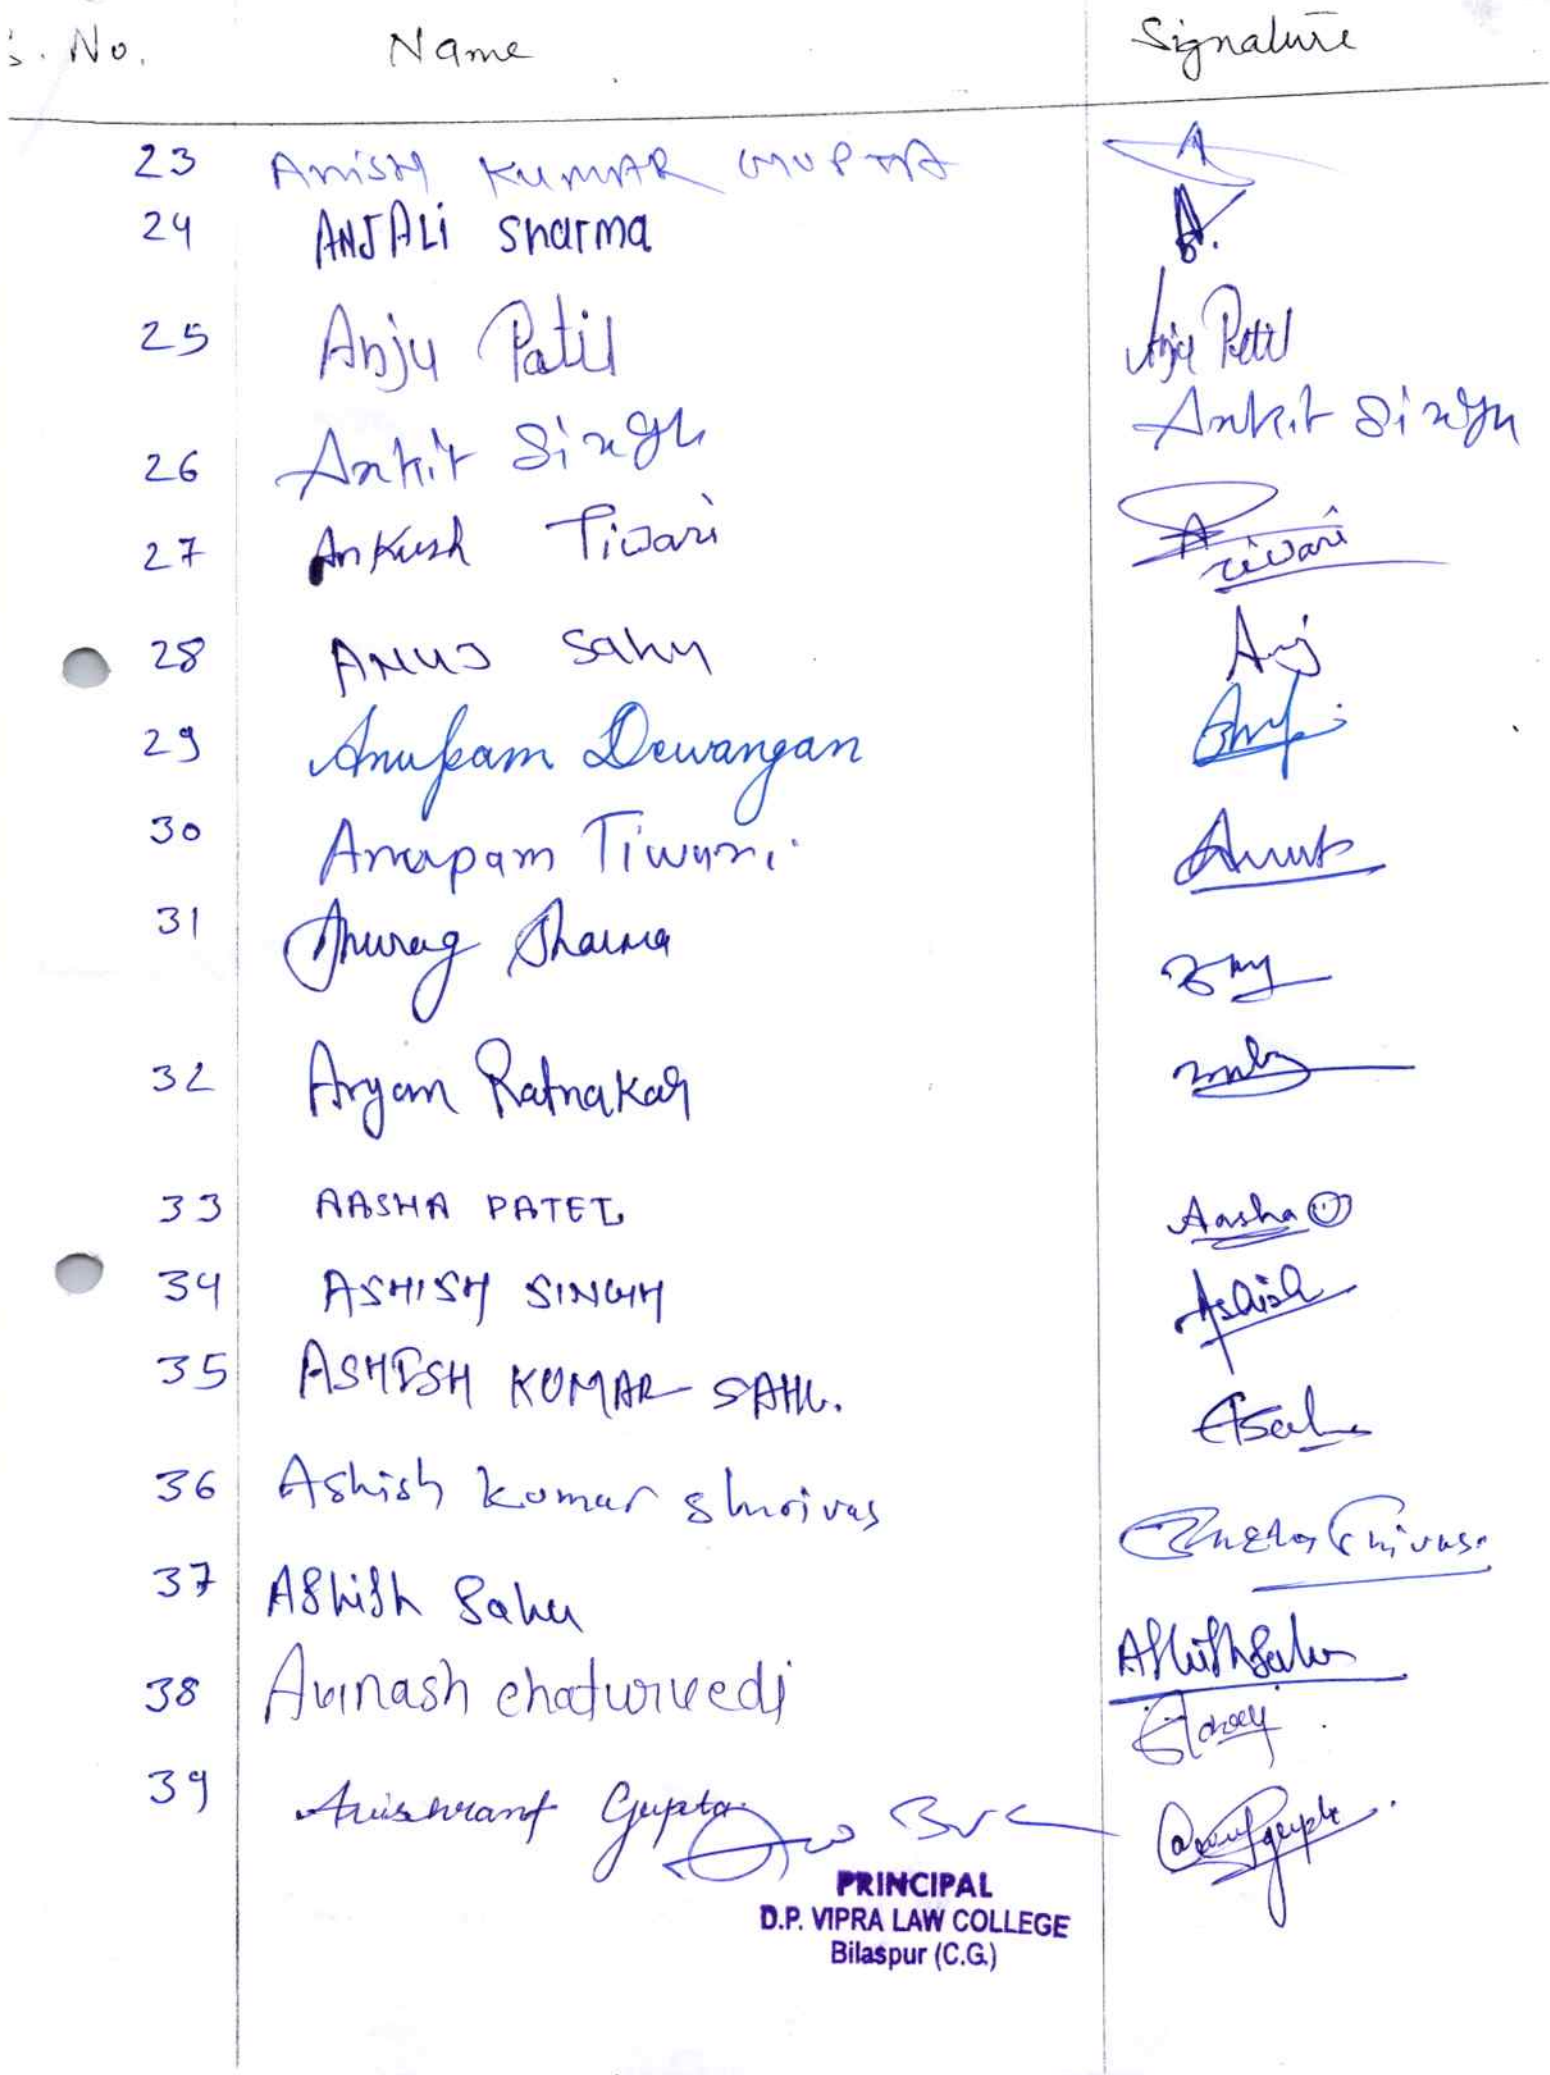 S. No. Name Signature
23 Anish KUMAR GUPTA A
24 ANJALi sharma A.
25 Anju Patil Anju Patil
26 Ankit Singh Ankit Singh
27 Ankush Tiwari A Tiwari
28 ANUJ Sahu Anj
29 Anupam Dewangan
30 Anupam Tiwari
31 Anurag Sharma
32 Aryan Ratnakar
33 AASHA PATEL Aasha
34 ASHISH SINGH Ashish
35 ASHISH KUMAR SAHU. Asahu
36 Ashish kumar shrivas
37 AShiSh Sahu AShiSh Sahu
38 Avinash chaturvedi
39 Gupta
PRINCIPAL
D.P. VIPRA LAW COLLEGE
Bilaspur (C.G.)